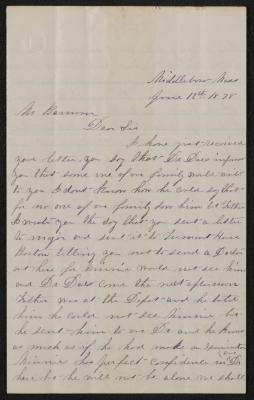 Middleboro Mass
June 12th 1878
Mr Barnum
Dear Sir
I have just received
your letter. you say that Dr Dies informs
you that some one of our family would write
to you I dont know how he could say that
for no one of our family saw him but Father
I wrote you the day that you sent a letter
to major and sent it to Tremont House
Boston telling you not to send a Doctor
out here for Minnie would not see him
and Dr Dies came the next afternoon
Father was at the Depot and he told
him he could not see Minnie but
he sent him to our Dr and he knows
as much as if he had made an examination
Minnie has perfect confidence in our Dr
here but he will not be alone we shall